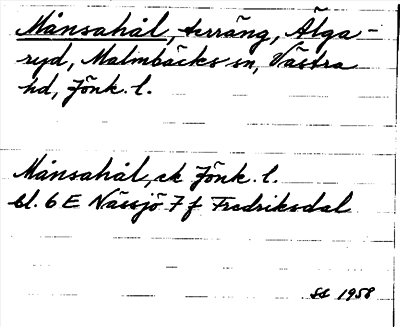 Månsahål, terräng, Älga-
ryd, Malmbäcks sn, Västra
hd, Jönk. l.
Månsahål, ek Jönk. l.
bl. 6 E Nässjö 7 f Fredriksdal
SS 1958